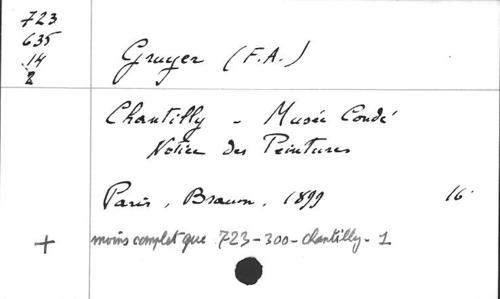 723
635
.14
2
Gruyer (F.A.)
Chantilly - Musée Condé
Notice des Peintures
Paris, Braun, 1899 16°
+ moins complet que 723-300-Chantilly-1